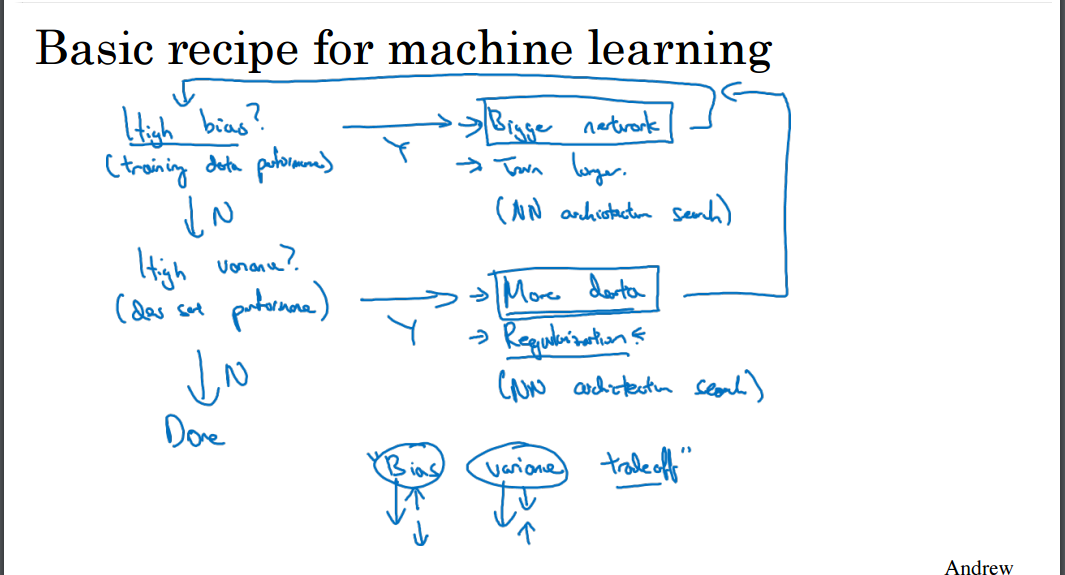 Basic recipe for machine learning
High bias? Y → Bigge network
(training data performance) → Train longer.
N (NN architecture search)
High variance?
(dev set performance) → More data
Y → Regularization
N (NN architecture search)
Done
"Bias variance tradeoff"
Andrew